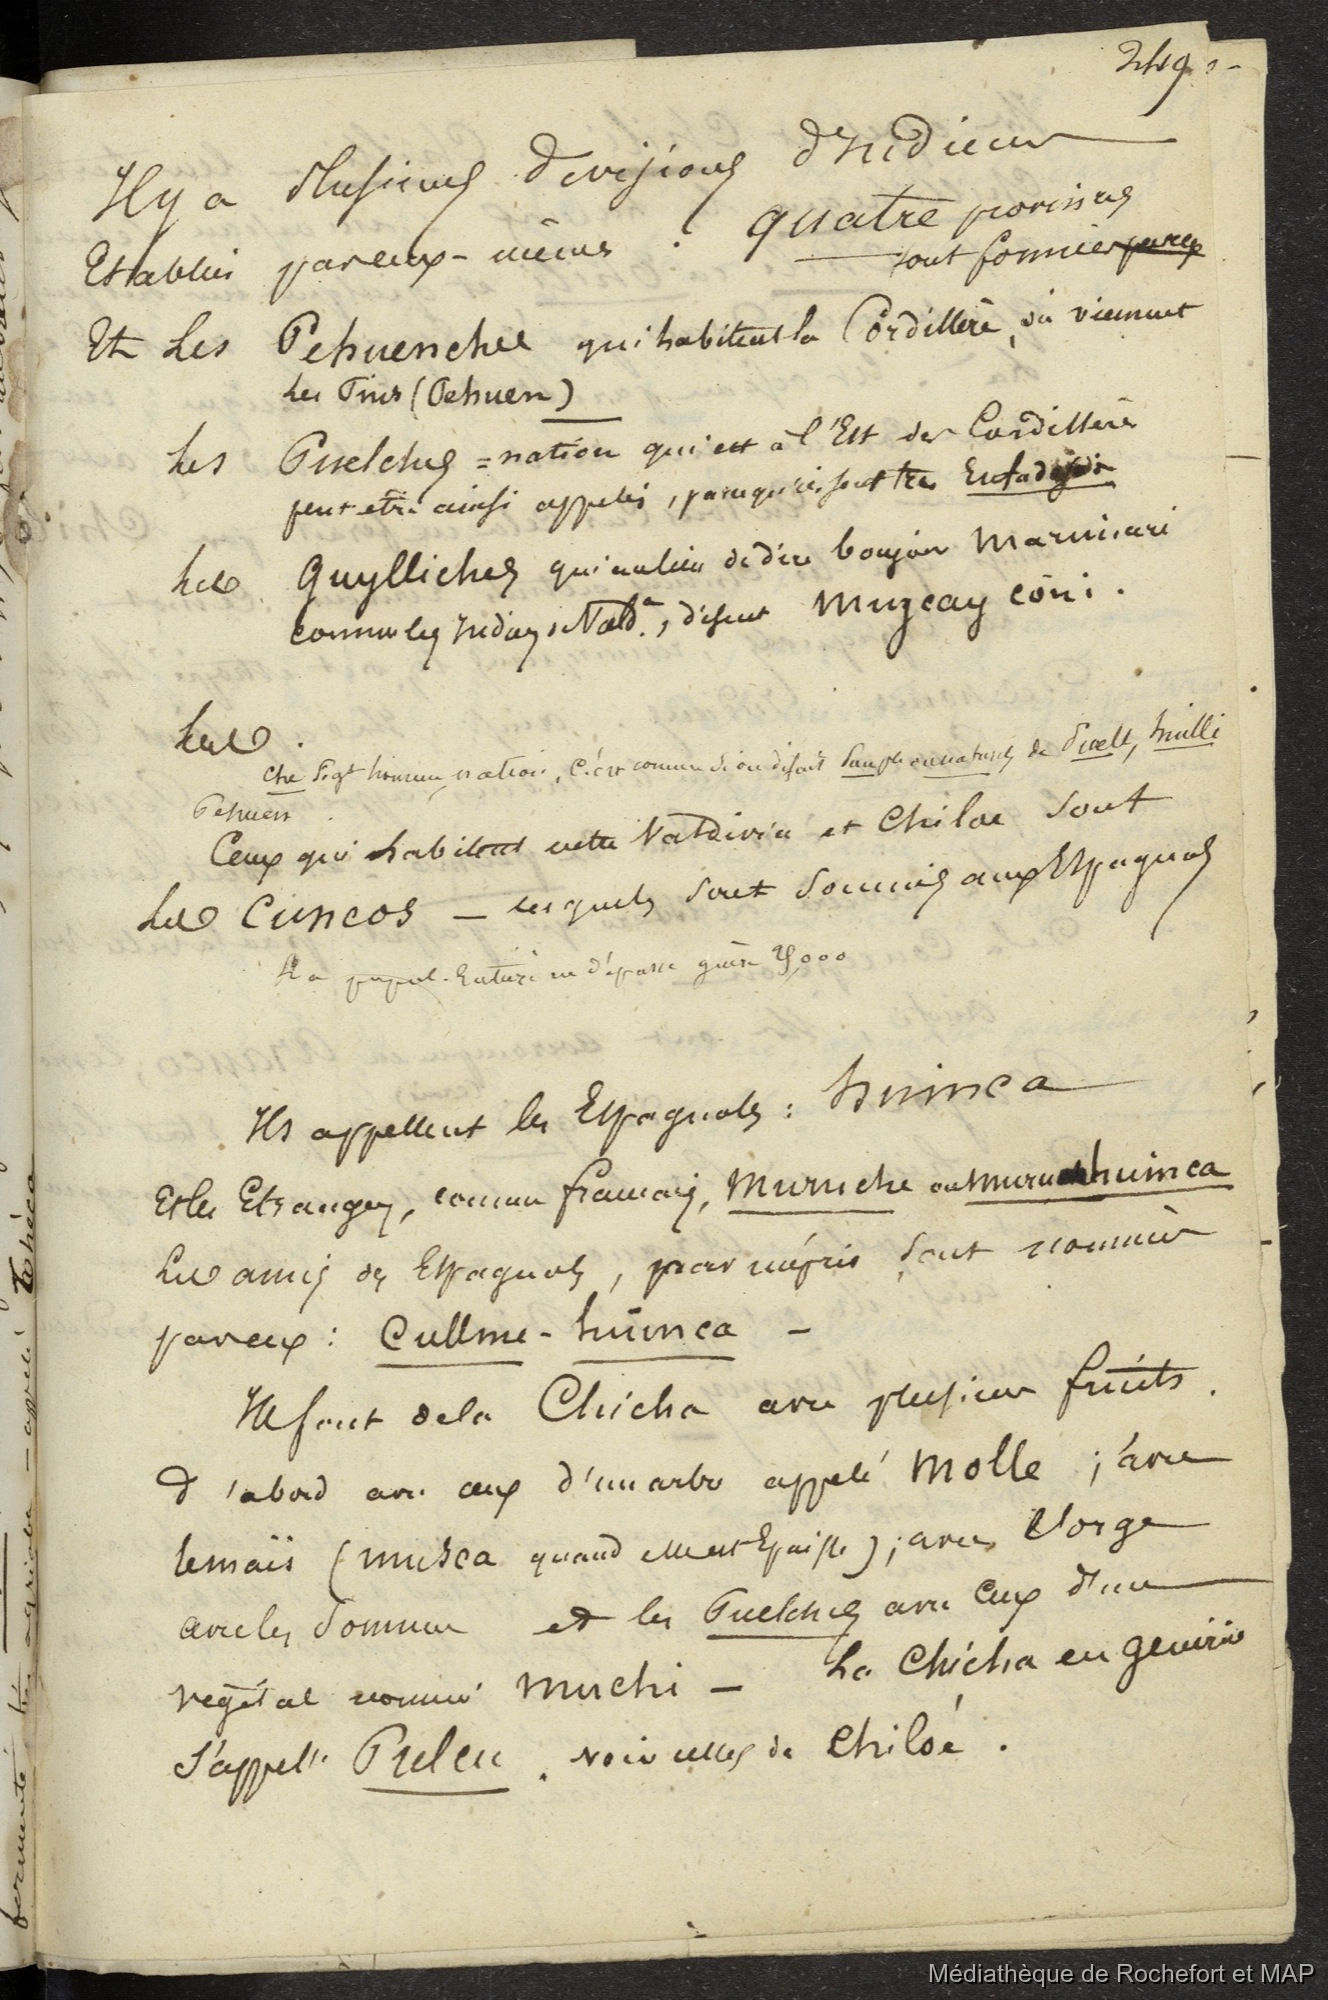 249
Il y a plusieurs divisions d'Indiens
Etablies par eux-mêmes . quatre provinces
sont formées par eux
Et Les Pehuenches qui habitent la Cordillère, où viennent
les Pins (Pehuen)
les Puelches = nation qui est à l'Est des Cordillères
peut etre ainsi appelés, parcequ'ils sont très
Les Guylliches qui au lieu de dire bonjour Marimari
comme les Indiens Vald.ª, disent Muzcay coñi .
Les .
che sigt homme, nation, c'est comme si on disait peuple ou naturels de Puell, huilli
Pehuen
Ceux qui habitent entre Valdivia et Chiloe sont
Les Cuncos — lesquels sont soumis aux Espagnols
La popul. Entière ne dépasse guère ,000
Ils appellent les Espagnols : huinca
Et les Etrangers, comme français, Muruche ou Muruhuinca
Les amis des Espagnols, par mépris sont nommés
par eux : Cullme - huinca —
Ils font de la Chicha avec plusieurs fruits .
d'abord avec ceux d'un arbre appelé Molle ; avec
le maïs (musca quand elle est Epaisse) ; avec l'orge
avec les Pommes et les Puelches avec Ceux d'un
végétal nommé Muchi — La Chicha en général
s'appelle Pulcu . voir celles de Chiloé .
fermenté
appelé
Médiathèque de Rochefort et MAP